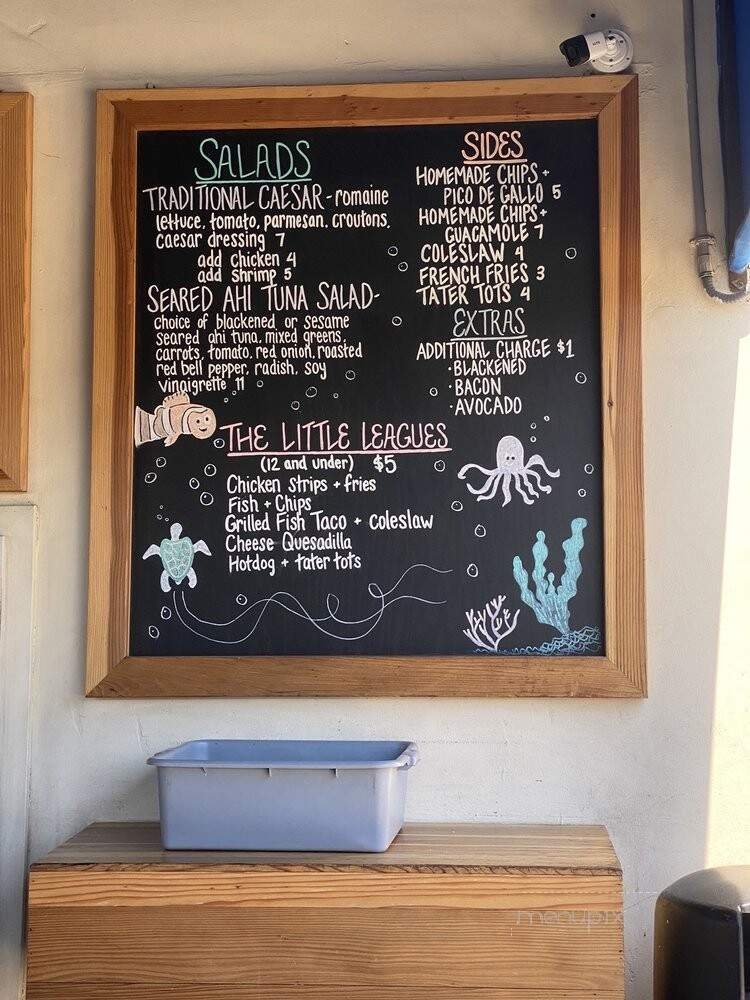 SALADS
TRADITIONAL CAESAR - romaine
lettuce, tomato, parmesan, croutons,
caesar dressing 7
add chicken 4
add shrimp 5
SEARED AHI TUNA SALAD -
choice of blackened or sesame
seared ahi tuna, mixed greens,
carrots, tomato, red onion, roasted
red bell pepper, radish, soy
vinaigrette 11
SIDES
HOMEMADE CHIPS +
PICO DE GALLO 5
HOMEMADE CHIPS +
GUACAMOLE 7
COLESLAW 4
FRENCH FRIES 3
TATER TOTS 4
EXTRAS
ADDITIONAL CHARGE $1
· BLACKENED
· BACON
· AVOCADO
THE LITTLE LEAGUES
(12 and under) $5
Chicken strips + fries
Fish + Chips
Grilled Fish Taco + coleslaw
Cheese Quesadilla
Hotdog + tater tots
menupix